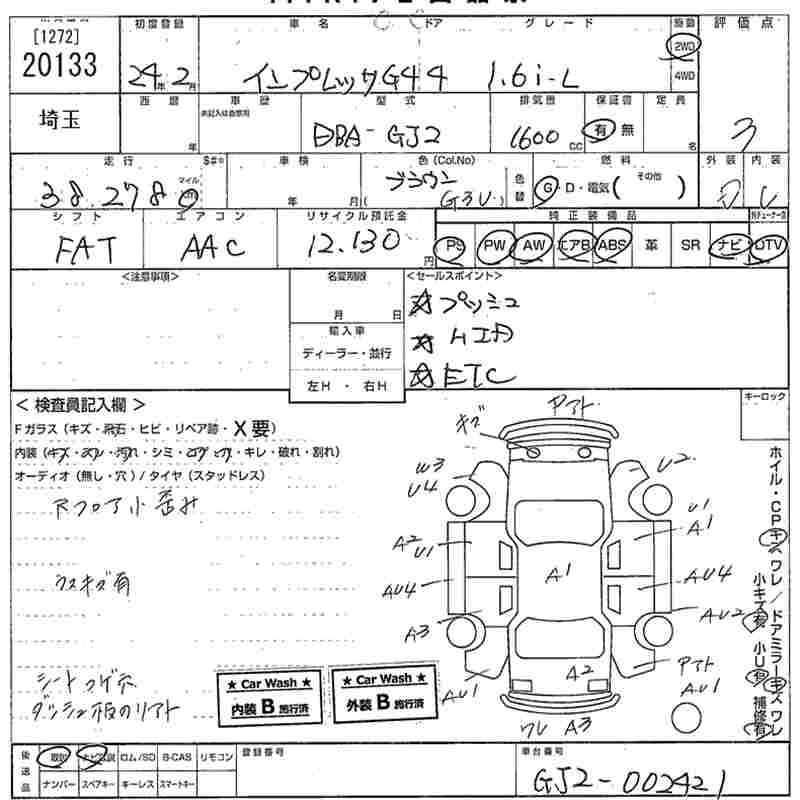 [1272]
20133
初度登録
24年2月
車名 ドア グレード
インプレッサG4 4 1.6i-L
駆動
2WD
4WD
評価点
3
埼玉
西暦
年
車歴
未記入は自家用
型式
DBA-GJ2
排気量
1600 cc
保証書
有 無
定員
名
走行 S#※
38,278 0 マイル km
車検
年 月
色(Col.No)
ブラウン
( G3U )
色替
燃料
G・D・電気( その他 )
外装 内装
シフト
FAT
エアコン
AAC
リサイクル預託金
12,130 円
純正装備品
PS PW AW エアB ABS 革 SR ナビ DTV
<注意事項>
名変期限
月 日
輸入車
ディーラー・並行
左H ・ 右H
<セールスポイント>
☆プッシュ
☆HID
☆ETC
< 検査員記入欄 >
Fガラス(キズ・飛石・ヒビ・リペア跡・X要)
内装(キズ・スレ・汚れ・シミ・コゲ・穴・キレ・破れ・割れ)
オーディオ(無し・穴)/タイヤ(スタッドレス)
ウスキズ有
シートコゲ穴
ダッシュ板のリアト
★ Car Wash ★
内装 B 施行済
★ Car Wash ★
外装 B 施行済
キーロック
キズ アアト
W3
U4
U2
A2
U1
U1
A1
A1
AU4
AU4
A3
AU2
AU1
A2
アアト
AU1
ワレ A3
ホイル・CP キズ ワレ/ドアミラー キズ ワレ
小キズ有 小U有 補修有
後送品
取説 ナビ取説 ロム/SD B-CAS リモコン
ナンバー スペアキー キーレス スマートキー
登録番号
車台番号
GJ2-002421